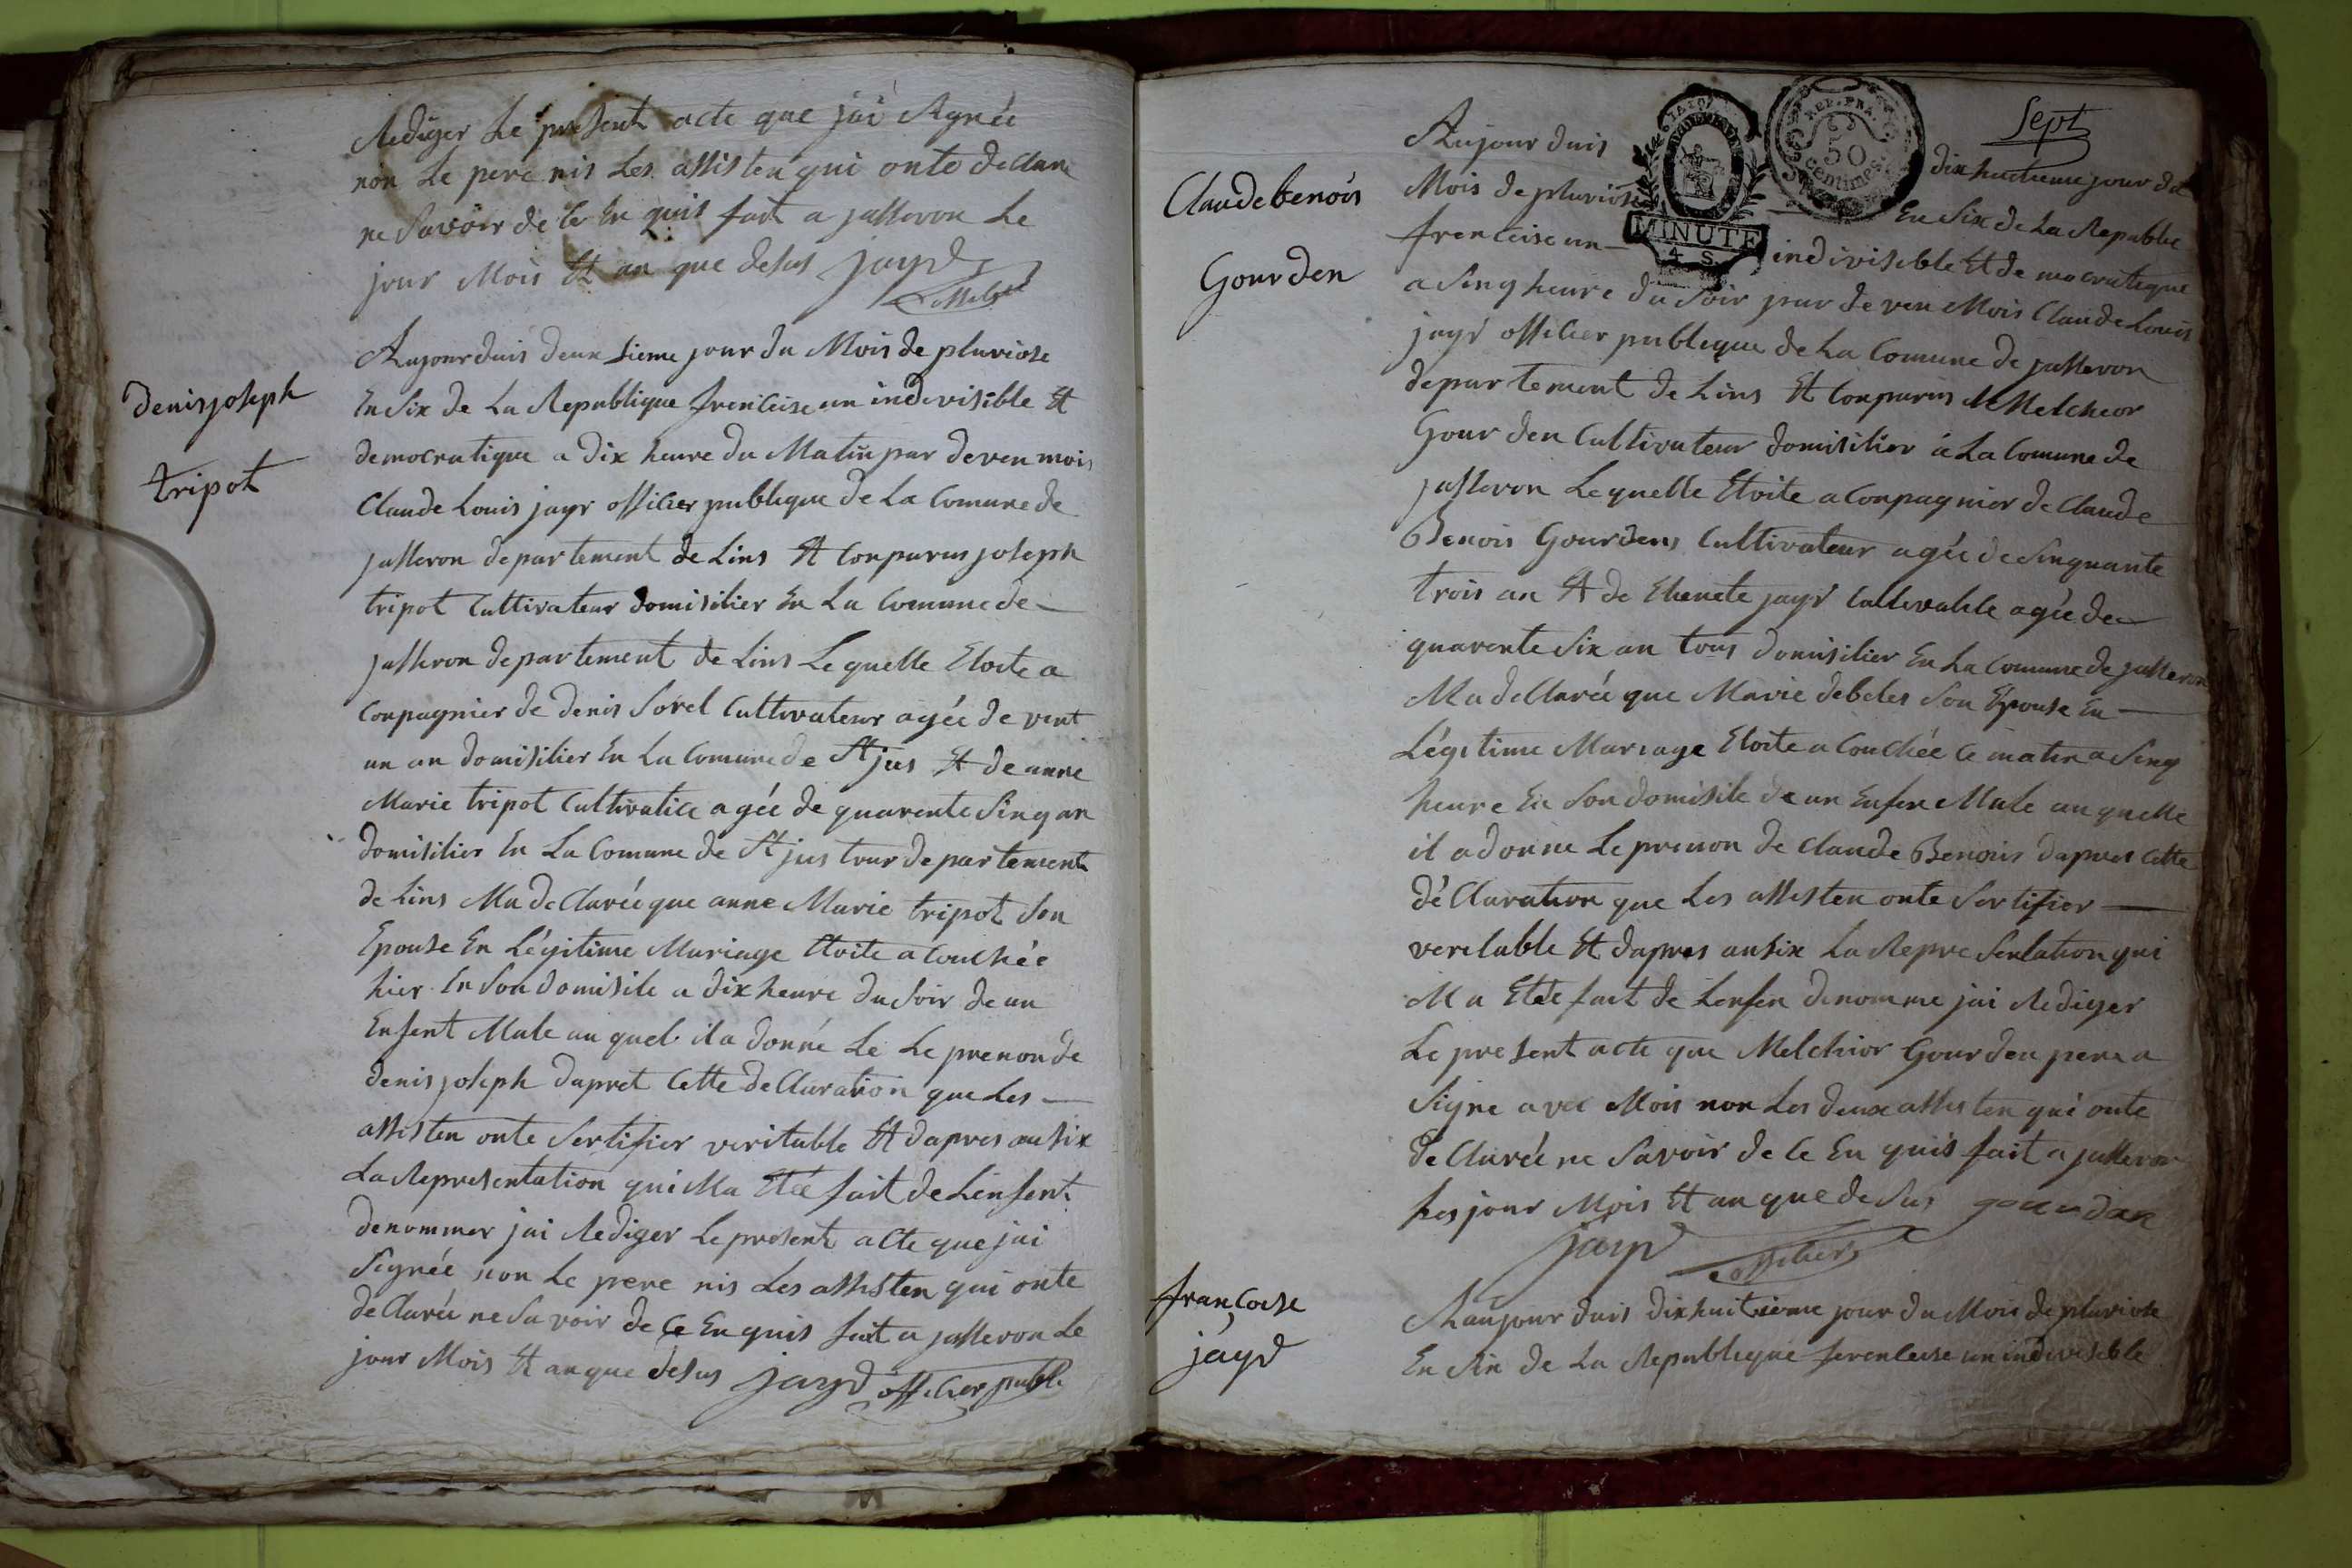 Rediger Le present acte que jai Signée
non Le pere nis Les assisten qui onte declare
ne Savoir de Ce En quis fait a jasseron Le
jour Mois Et an que desus jayr
officier
denis joseph
tripot
Aujourduis deuxsieme jour du Mois de pluviose
En Six de La Republique frenceise un indevisible Et
democratique a dix heure du Matin par deven mois
Claude Louis jayr officier publique de La Comune de
jasseron departement de Lins Et Conparus joseph
tripot Cultivateur domisilier En La Comune de
jasseron departement de Lins Le quelle Etoite a
Conpagnier de denis Sorel Cultivateur agée de vint
un an domisilier En La Comune de St jus Et de anne
Marie tripot Cultivatice agée de quarente Sinq an
domisilier En La Comune de St jus tour departement
de Lins Ma de Clarée que anne Marie tripot Son
Epouse En Légitime Mariage Etoite a Couchée
hier En Son domisile a dix heure du Soir de un
Enfent Male au quel il a donné Le Le prenon de
denis joseph dapret Cette de Claration que Les
assisten onte Sertifier veritable Et dapresausix
La Representation qui Ma Etée fait de Lenfent
denommer jai Rediger Le present acte que jai
Signée non Le pere nis Les assisten qui onte
de Clarée ne Savoir de Ce En quis fait a jasseron Le
jour Mois Et an que desus jayr officier publi
Sept
REP. FRA.
50
centimes
MINUTE
4 S
Claude benois
Gourden
Aujourduis dix huitieme jour du
Mois de pluviose En Six de La Republie
frenceise un indivisible Et de mocratique
a Sinq heure du Soir par de ven Mois Claude Louis
jayr officier publique de La Comune de jasseron
departement de Lins Et Conparus Melcheor
Gourden Cultivateur domisilier a La Comune de
jasseron Le quelle Etoite a Conpagnier de Claude
Benois Gourdens Cultivateur agée de Sinquante
trois an Et de jayr agée de
quarente Six an tous domisilier En La Comune de jasseron
Ma de Clarée que Marie debeles Son Epouse En
Légitime Mariage Etoite a Couchée Ce matin a Sinq
heure En Son domisile de un Enfen Male au quelle
il a donne Le prenon de Claude Benois dapres Cette
dé Claration que Les assisten onte Sertifier
veretable Et dapres ausix La Repre Sentation qui
Ma Etée fait de Lenfen denomme jai Rediger
Le present acte que Melchior Gourden pere a
Signe avec Mois non Les deux assisten qui onte
de Clarée ne Savoir de Ce En quis fait a jasseron
Les jour Mois Et an que de Sus gourdan
jayr officier
francoise
jayr
Aaujourduis dix huitieme jour du Mois de pluviose
En Six de La Republique frenceise un indevisible